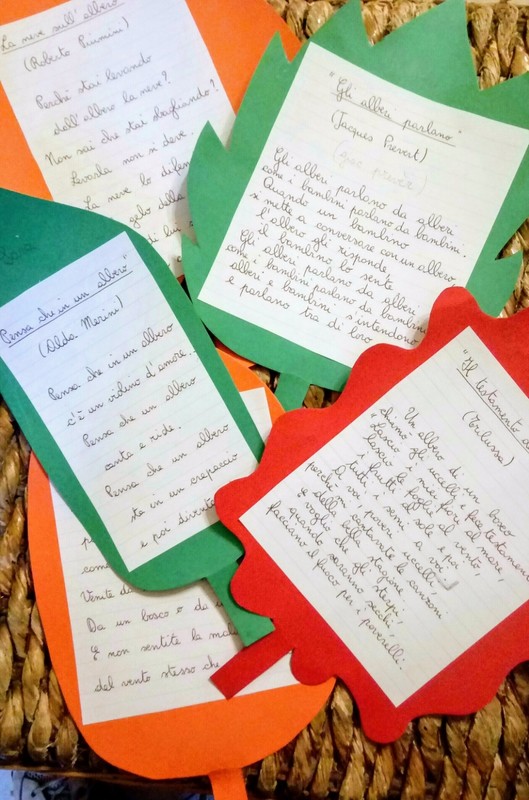 La neve sull'albero
(Roberto Piumini)
Perché stai levando
dall'albero la neve?
Non sai che stai sbagliando?
Levarla non si deve.
La neve lo difen
gelo della
di lui
"Gli alberi parlano"
(Jacques Prevert)
Gli alberi parlano da alberi
come i bambini parlano da bambini.
Quando un bambino
si mette a conversare con un albero
l'albero gli risponde
e il bambino lo sente
Gli alberi parlano da alberi
come i bambini parlano da bambini
alberi e bambini s'intendono
e parlano tra di loro
Pensa che in un albero"
(Alda Merini)
Pensa che in un albero
c'è un violino d'amore.
Pensa che un albero
canta e ride.
Pensa che un albero
sta in un crepaccio
e poi diventa
"Il testamento
(Trilussa)
Un albero di un bosco
chiamò gli uccelli e fece testamento
"Lascio i miei fiori al mare,
lascio le foglie al vento,
i frutti al sole e poi
tutti i semi a voi
a voi, poveri uccelli,
perché mi cantavate le canzoni
della bella stagione.
E voglio che gli sterpi,
quando saranno secchi,
facciano il fuoco per i poverelli.
come
Venite da
Da un bosco o da
E non sentite la
del vento stesso che